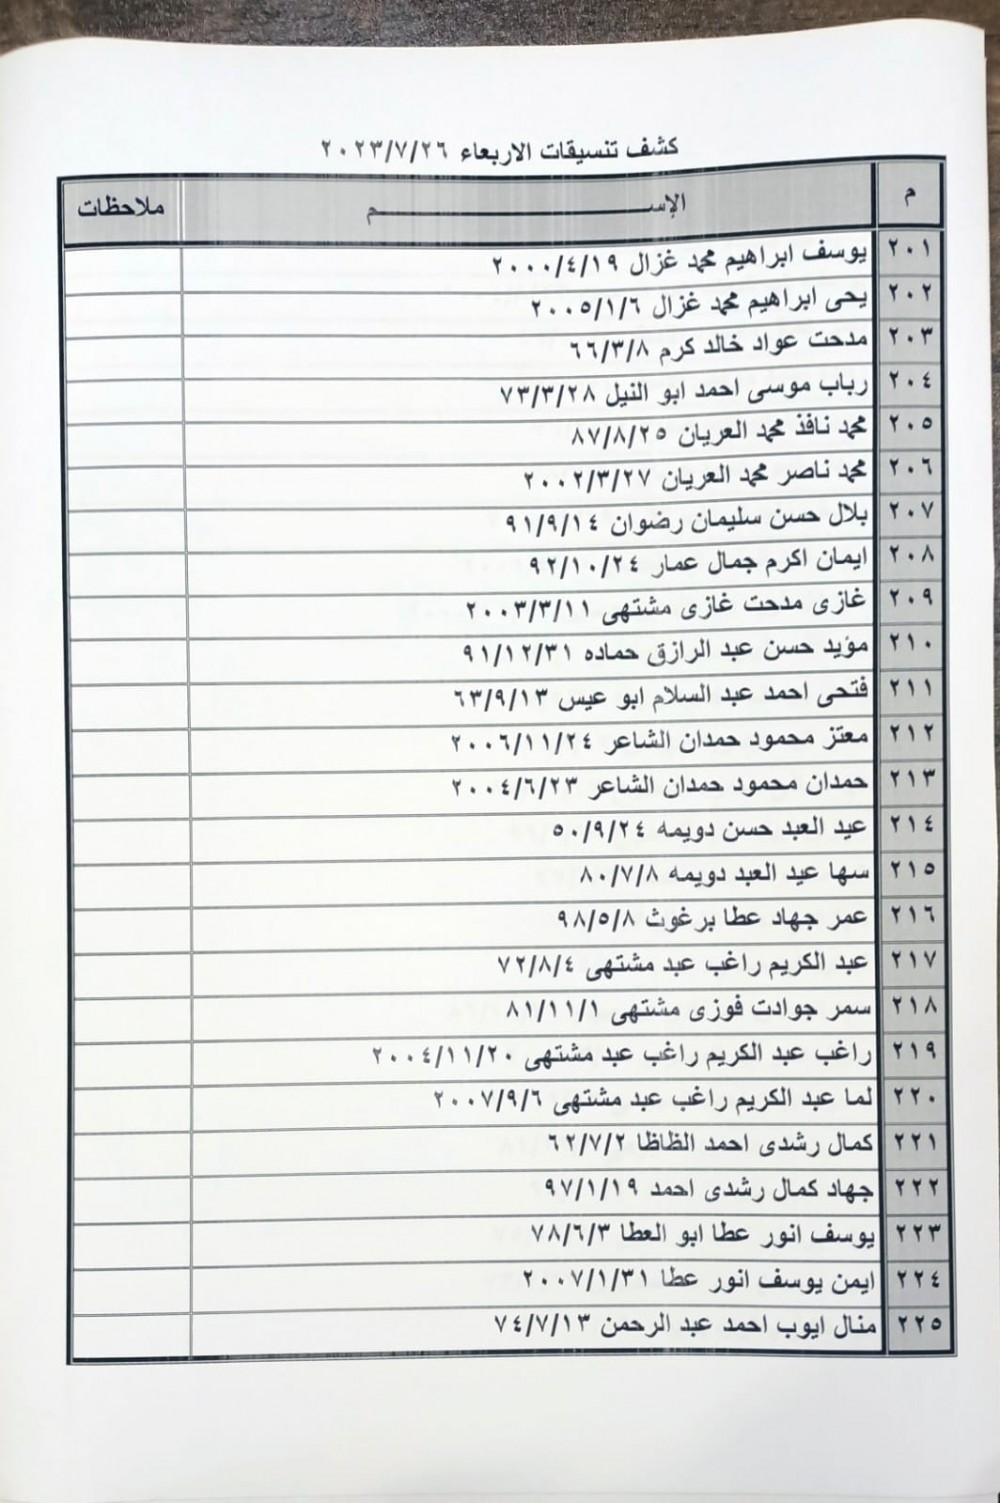 كشف تنسيقات الاربعاء ٢٠٢٣/٧/٢٦
م الإســـــــــــــم ملاحظات
٢٠١ يوسف ابراهيم محمد غزال ٢٠٠٠/٤/١٩
٢٠٢ يحى ابراهيم محمد غزال ٢٠٠٥/١/٦
٢٠٣ مدحت عواد خالد كرم ٦٦/٣/٨
٢٠٤ رباب موسى احمد ابو النيل ٧٣/٣/٢٨
٢٠٥ محمد نافذ محمد العريان ٨٧/٨/٢٥
٢٠٦ محمد ناصر محمد العريان ٢٠٠٢/٣/٢٧
٢٠٧ بلال حسن سليمان رضوان ٩١/٩/١٤
٢٠٨ ايمان اكرم جمال عمار ٩٢/١٠/٢٤
٢٠٩ غازى مدحت غازى مشتهى ٢٠٠٣/٣/١١
٢١٠ مؤيد حسن عبد الرازق حماده ٩١/١٢/٣١
٢١١ فتحى احمد عبد السلام ابو عيس ٦٣/٩/١٣
٢١٢ معتز محمود حمدان الشاعر ٢٠٠٦/١١/٢٤
٢١٣ حمدان محمود حمدان الشاعر ٢٠٠٤/٦/٢٣
٢١٤ عيد العبد حسن دويمه ٥٠/٩/٢٤
٢١٥ سها عيد العبد دويمه ٨٠/٧/٨
٢١٦ عمر جهاد عطا برغوث ٩٨/٥/٨
٢١٧ عبد الكريم راغب عبد مشتهى ٧٢/٨/٤
٢١٨ سمر جوادت فوزى مشتهى ٨١/١١/١
٢١٩ راغب عبد الكريم راغب عبد مشتهى ٢٠٠٤/١١/٢٠
٢٢٠ لما عبد الكريم راغب عبد مشتهى ٢٠٠٧/٩/٦
٢٢١ كمال رشدى احمد الظاظا ٦٢/٧/٢
٢٢٢ جهاد كمال رشدى احمد ٩٧/١/١٩
٢٢٣ يوسف انور عطا ابو العطا ٧٨/٦/٣
٢٢٤ ايمن يوسف انور عطا ٢٠٠٧/١/٣١
٢٢٥ منال ايوب احمد عبد الرحمن ٧٤/٧/١٣